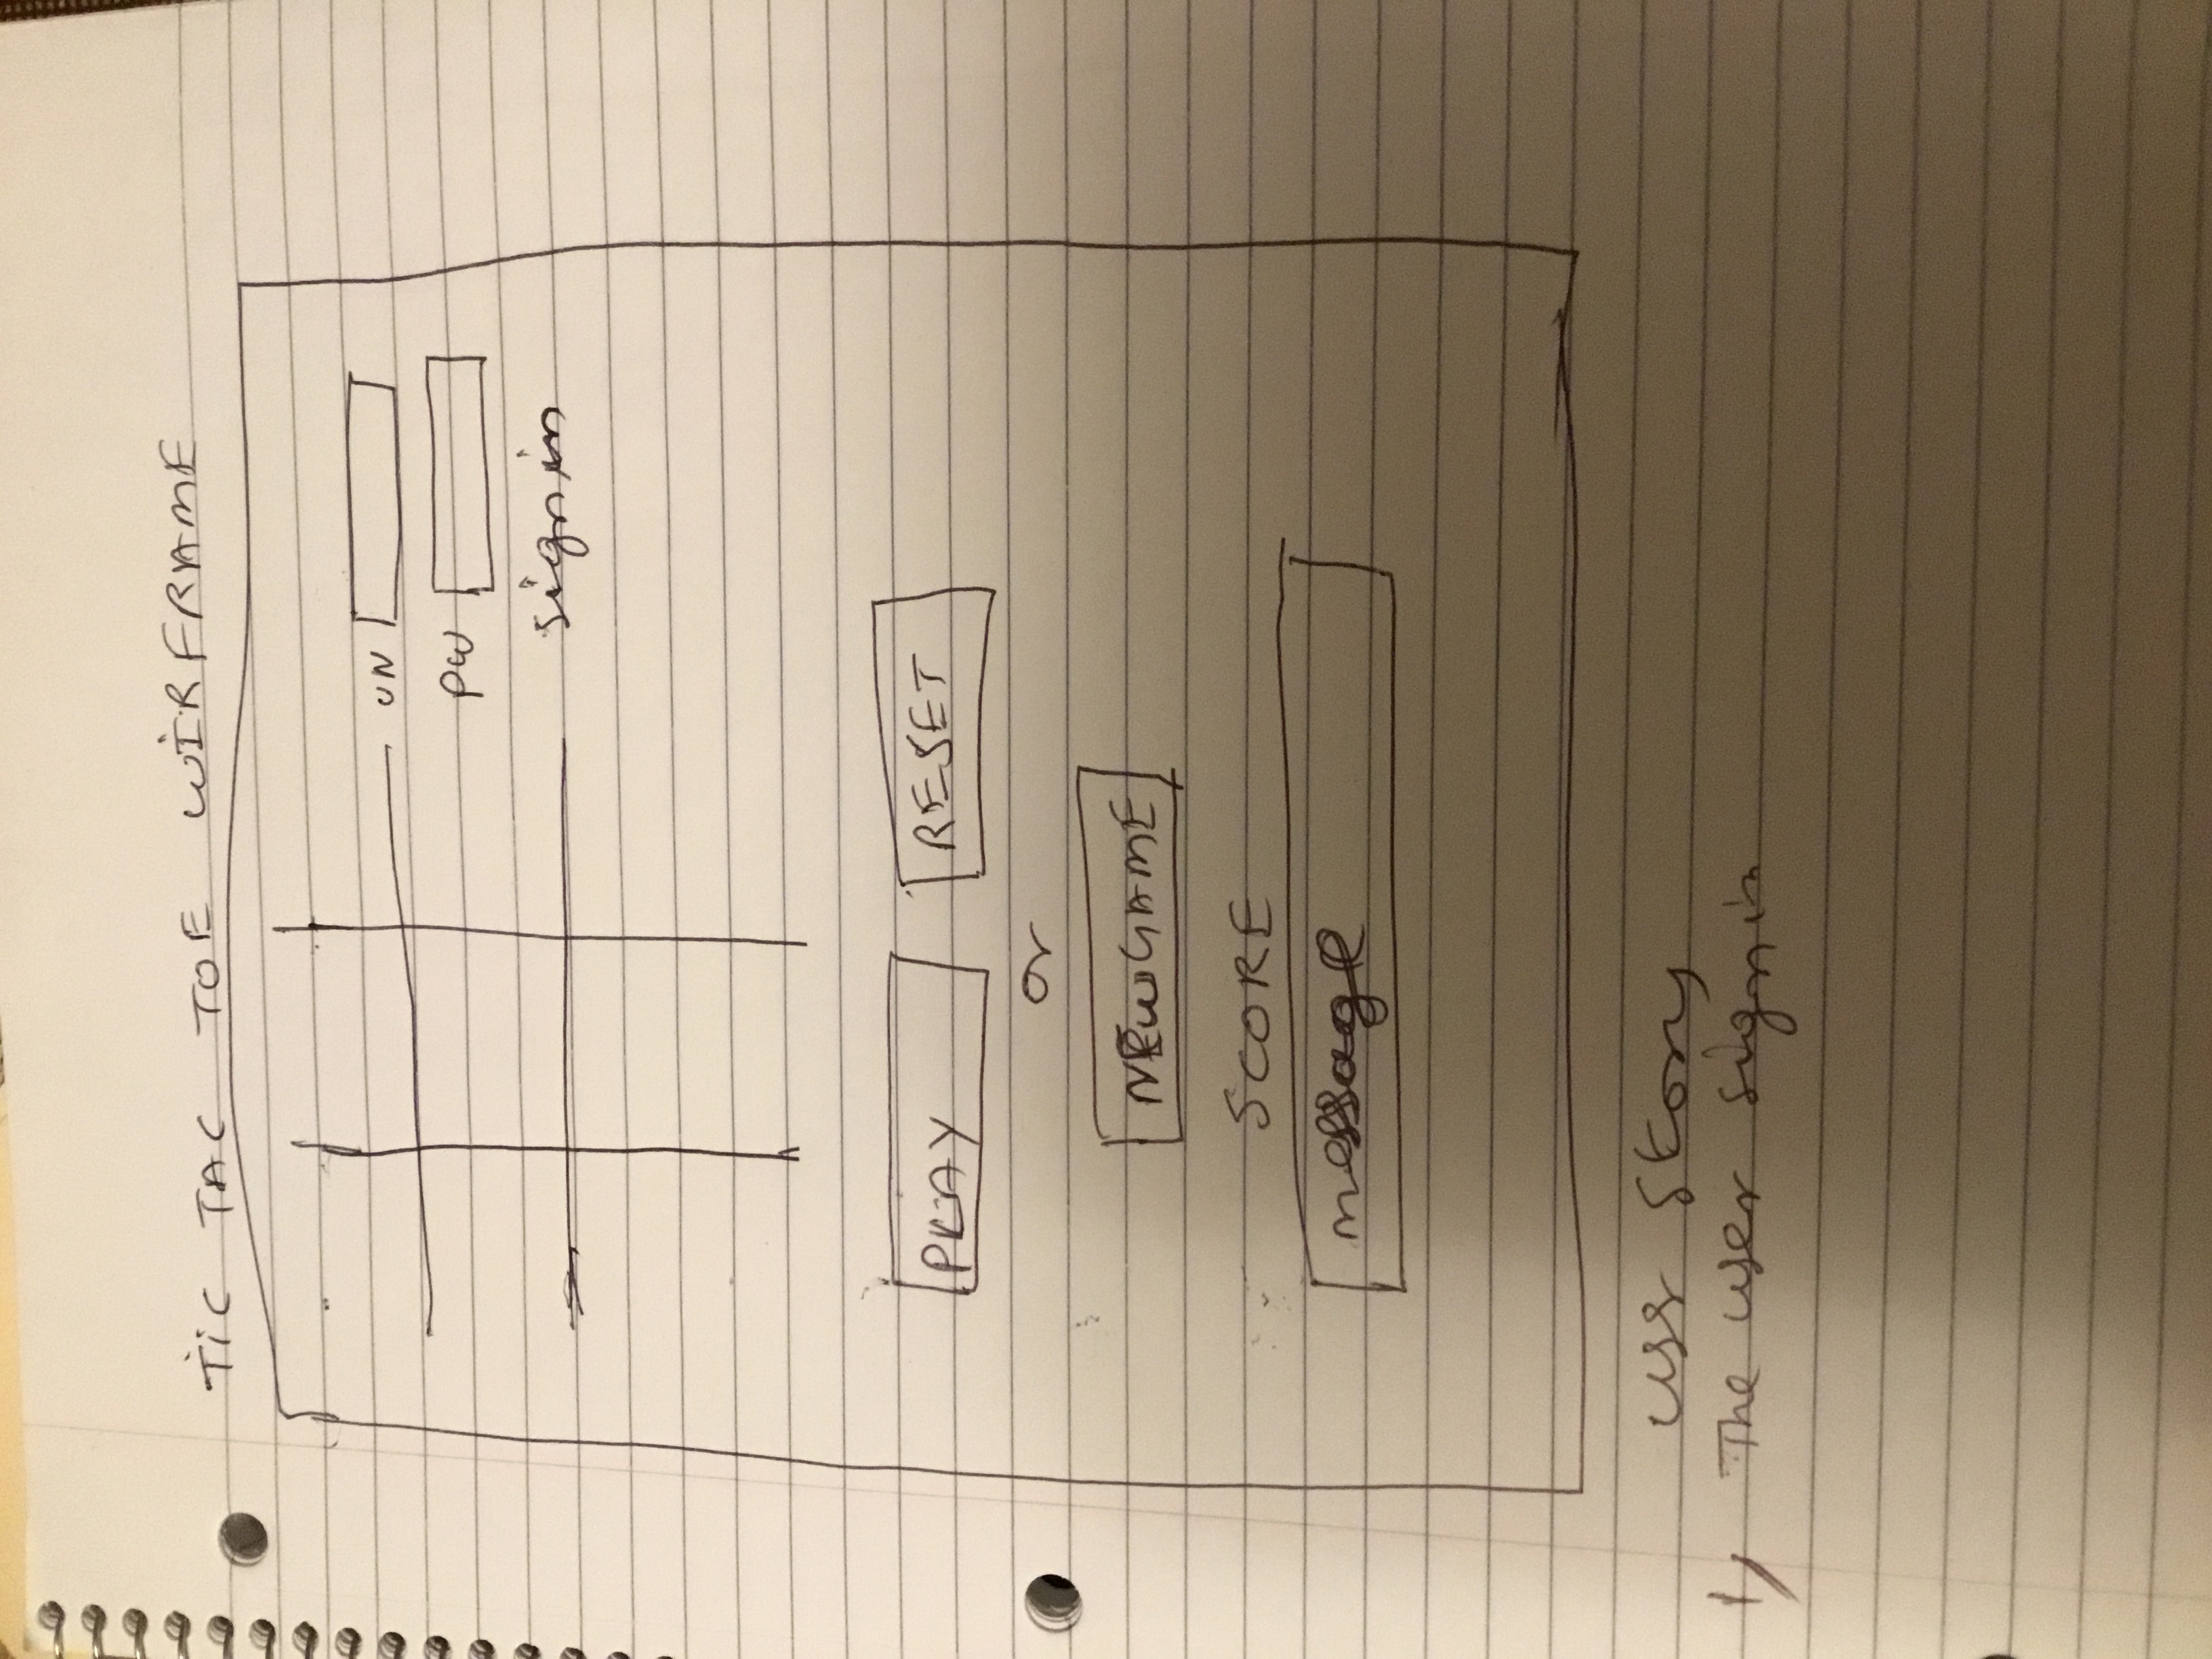 TiC TAC TOE WIRFRAME
UN
PW
sign in
PLAY RESET
or
NEWGAME
SCORE
message
Story
1, The user sign in